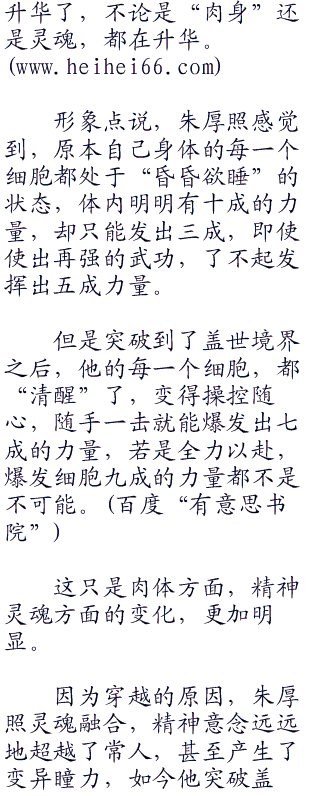 升华了，不论是“肉身”还
是灵魂，都在升华。
(www.heihei66.com)
形象点说，朱厚照感觉
到，原本自己身体的每一个
细胞都处于“昏昏欲睡”的
状态，体内明明有十成的力
量，却只能发出三成，即使
使出再强的武功，了不起发
挥出五成力量。
但是突破到了盖世境界
之后，他的每一个细胞，都
“清醒”了，变得操控随
心，随手一击就能爆发出七
成的力量，若是全力以赴，
爆发细胞九成的力量都不是
不可能。(百度“有意思书
院”)
这只是肉体方面，精神
灵魂方面的变化，更加明
显。
因为穿越的原因，朱厚
照灵魂融合，精神意念远远
地超越了常人，甚至产生了
变异瞳力，如今他突破盖